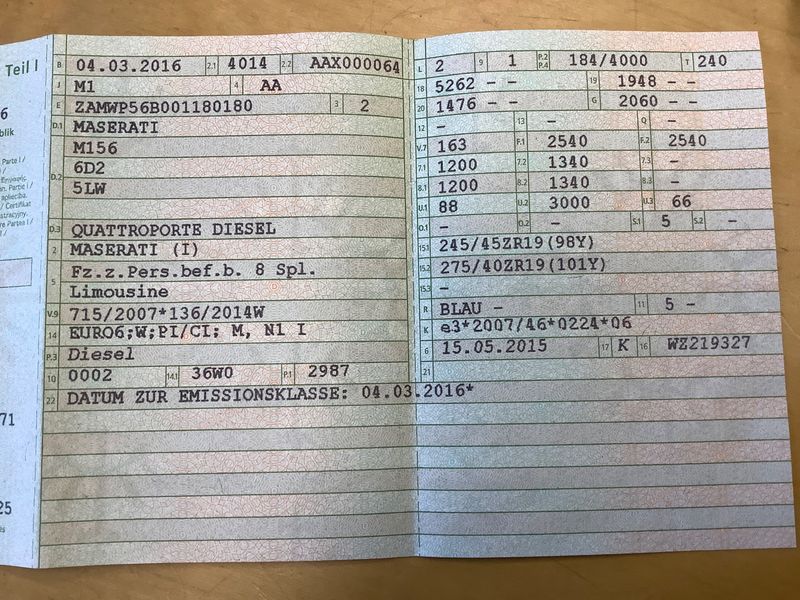 Teil I
6
blik
Parte I /
Partie I /
apliecība.
/ Certifikat
stracyjny.
re Partea I /
71
25
B 04.03.2016 2.1 4014 2.2 AAX000064
J M1 4 AA
E ZAMWP56B001180180 3 2
D.1 MASERATI
M156
D.2 6D2
5LW
D.3 QUATTROPORTE DIESEL
2 MASERATI (I)
5 Fz.z.Pers.bef.b. 8 Spl.
Limousine
V.9 715/2007*136/2014W
14 EURO6;W;PI/CI; M, N1 I
P.3 Diesel
10 0002 14.1 36W0 P.1 2987
22 DATUM ZUR EMISSIONSKLASSE: 04.03.2016*
L 2 9 1 P.2 P.4 184/4000 T 240
18 5262 - - 19 1948 - -
20 1476 - - G 2060 - -
12 - 13 - Q -
V.7 163 F.1 2540 F.2 2540
7.1 1200 7.2 1340 7.3 -
8.1 1200 8.2 1340 8.3 -
U.1 88 U.2 3000 U.3 66
O.1 - O.2 - S.1 5 S.2 -
15.1 245/45ZR19(98Y)
15.2 275/40ZR19(101Y)
15.3 -
R BLAU - 11 5 -
K e3*2007/46*0224*06
6 15.05.2015 17 K 16 WZ219327
21